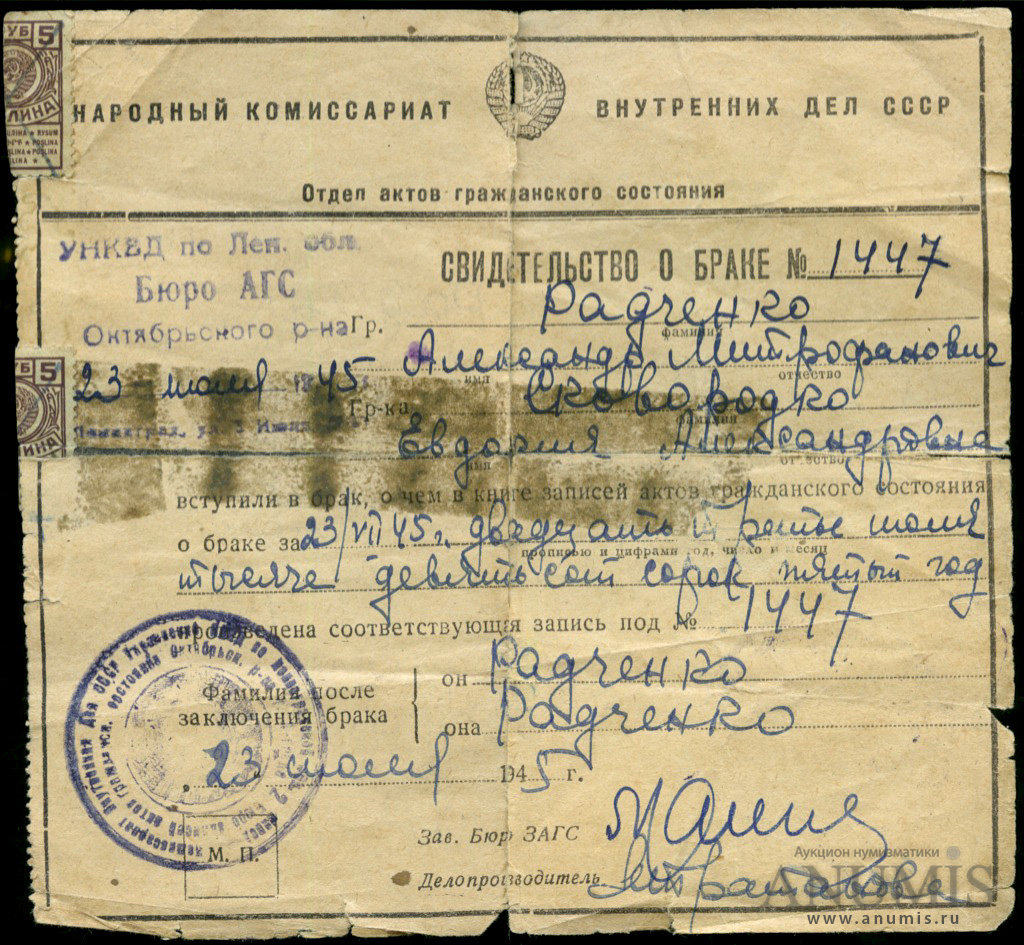 РУБ 5
НАРОДНЫЙ КОМИССАРИАТ ВНУТРЕННИХ ДЕЛ СССР
Отдел актов гражданского состояния
УНКВД по Лен. обл.
Бюро АГС
Октябрьского р-на
СВИДЕТЕЛЬСТВО О БРАКЕ № 1447
Гр. Радченко
фамилия
Александр Митрофанович
имя отчество
23 июля 1945
Гр-ка Сковородко
фамилия
Евдокия Александровна
имя отчество
вступили в брак, о чем в книге записей актов гражданского состояния
о браке за 23/VII 45 г. двадцать третье июля
прописью и цифрами год, число и месяц
тысяча девятьсот сорок пятый год
произведена соответствующая запись под № 1447
Фамилии после заключения брака
он Радченко
она Радченко
23 июля 1945 г.
М. П.
Зав. Бюро ЗАГС
Делопроизводитель
Аукцион нумизматики
ANUMIS
www.anumis.ru